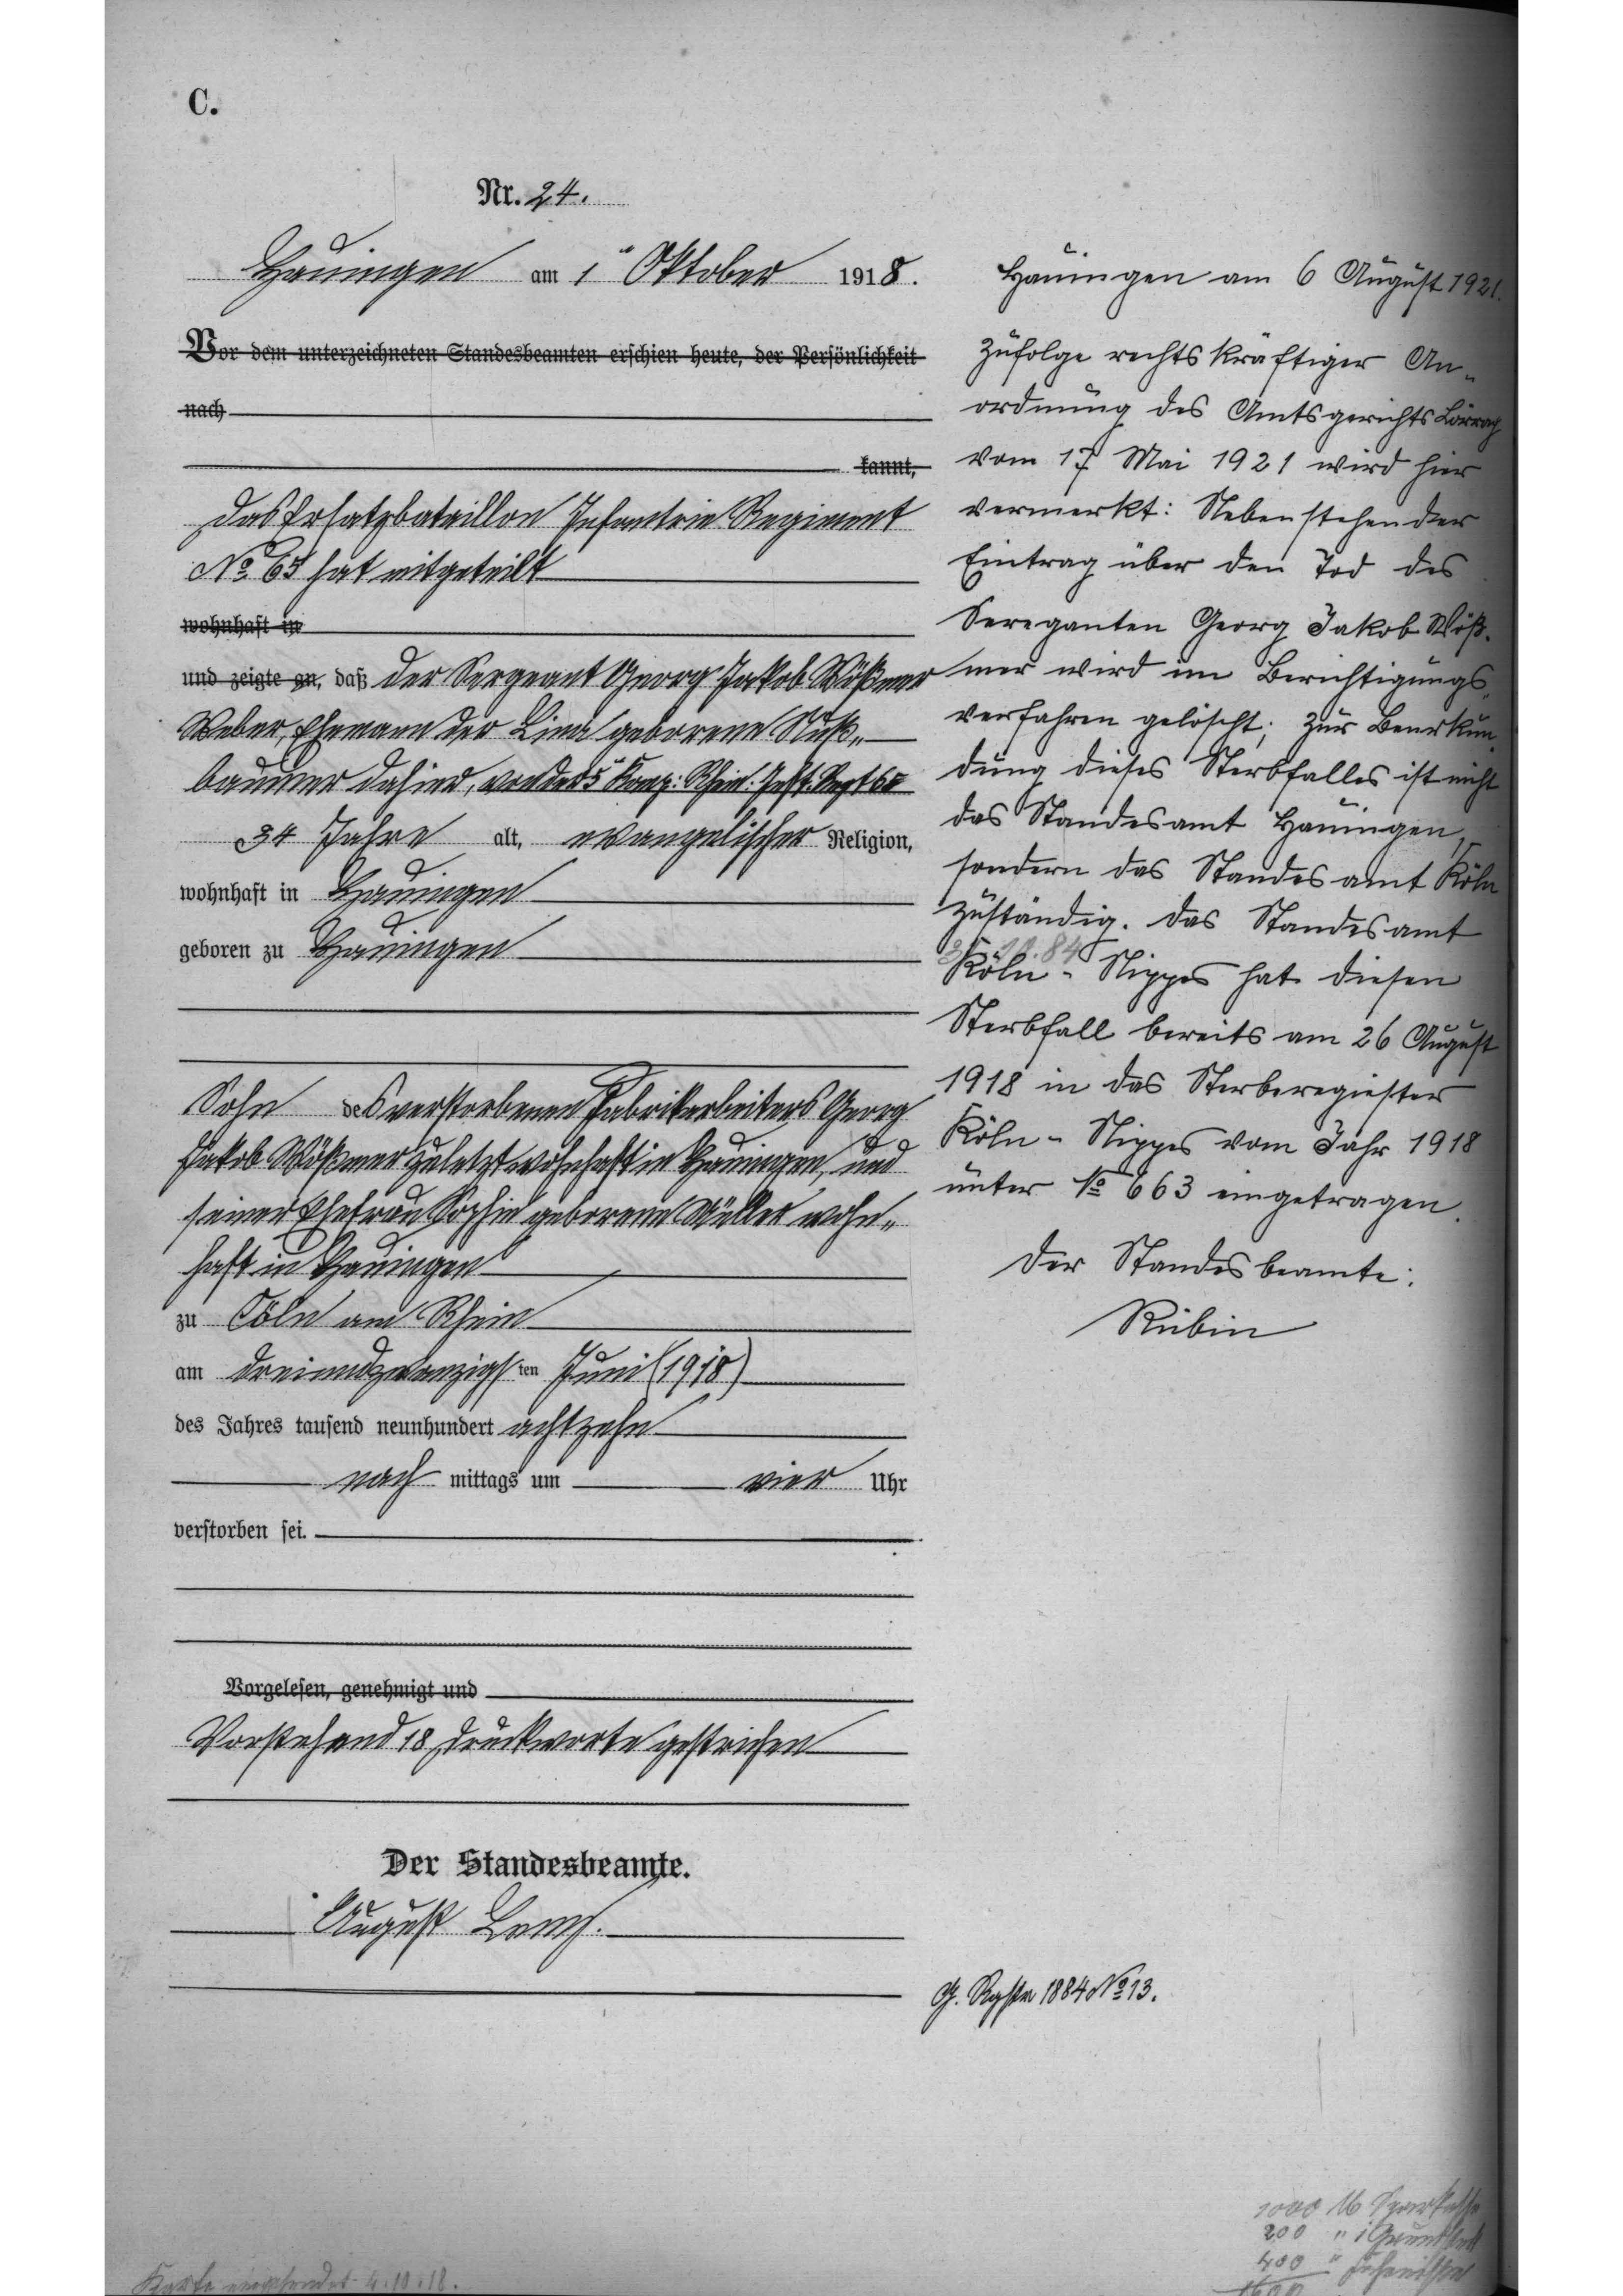 C.
Nr. 24.
Hauingen am 1ᵗᵉⁿ Oktober 1918.
Vor dem unterzeichneten Standesbeamten erschien heute, der Persönlichkeit
nach
kannt,
Das Ersatzbataillon Infanterie Regiment
No 65 hat mitgeteilt
wohnhaft in
und zeigte an, daß der Sergeant Georg Jakob Wößmer
Weber, Ehemann der Lina geborene Nuß„
baumer dahier, von der 5 Komp: Rhein: Inft. Regt 65
34 Jahre alt, evangelischer Religion,
wohnhaft in Hauingen
geboren zu Hauingen
Sohn des verstorbenen Fabrikarbeiters Georg
Jakob Wößmer zuletzt wohnhaft in Hauingen, und
seiner Ehefrau Sophie geborene Müller wohn„
haft in Hauingen
zu Cöln am Rhein
am dreiundzwanzigsten Juni (1918)
des Jahres tausend neunhundert achtzehn
nach mittags um vier Uhr
verstorben sei.
Vorgelesen, genehmigt und
Vorstehend 18 Druckworte gestrichen
Der Standesbeamte.
August
Hauingen am 6 August 1921.
Zufolge rechtskräftiger An„
ordnung des Amtsgerichts Lörrach
vom 17 Mai 1921 wird hier
vermerkt: Nebenstehender
Eintrag über den Tod des
Sereganten Georg Jakob Wöß„
mer wird im Berichtigungs„
verfahren gelöscht; zur Beurkun„
dung dieses Sterbfalles ist nicht
das Standesamt Hauingen,
sondern das Standesamt Köln
zuständig. Das Standesamt
Köln - Nippes hat diesen
Sterbfall bereits am 26 August
1918 in das Sterberegister
Köln - Nippes vom Jahr 1918
unter No 663 eingetragen.
Der Standesbeamte:
Rübin
G. Rgstr 1884 No 13.
1000 M Sparkasse
200 "
400 " Fahrnisse
1600
Karte eingesendet 4.10.18.